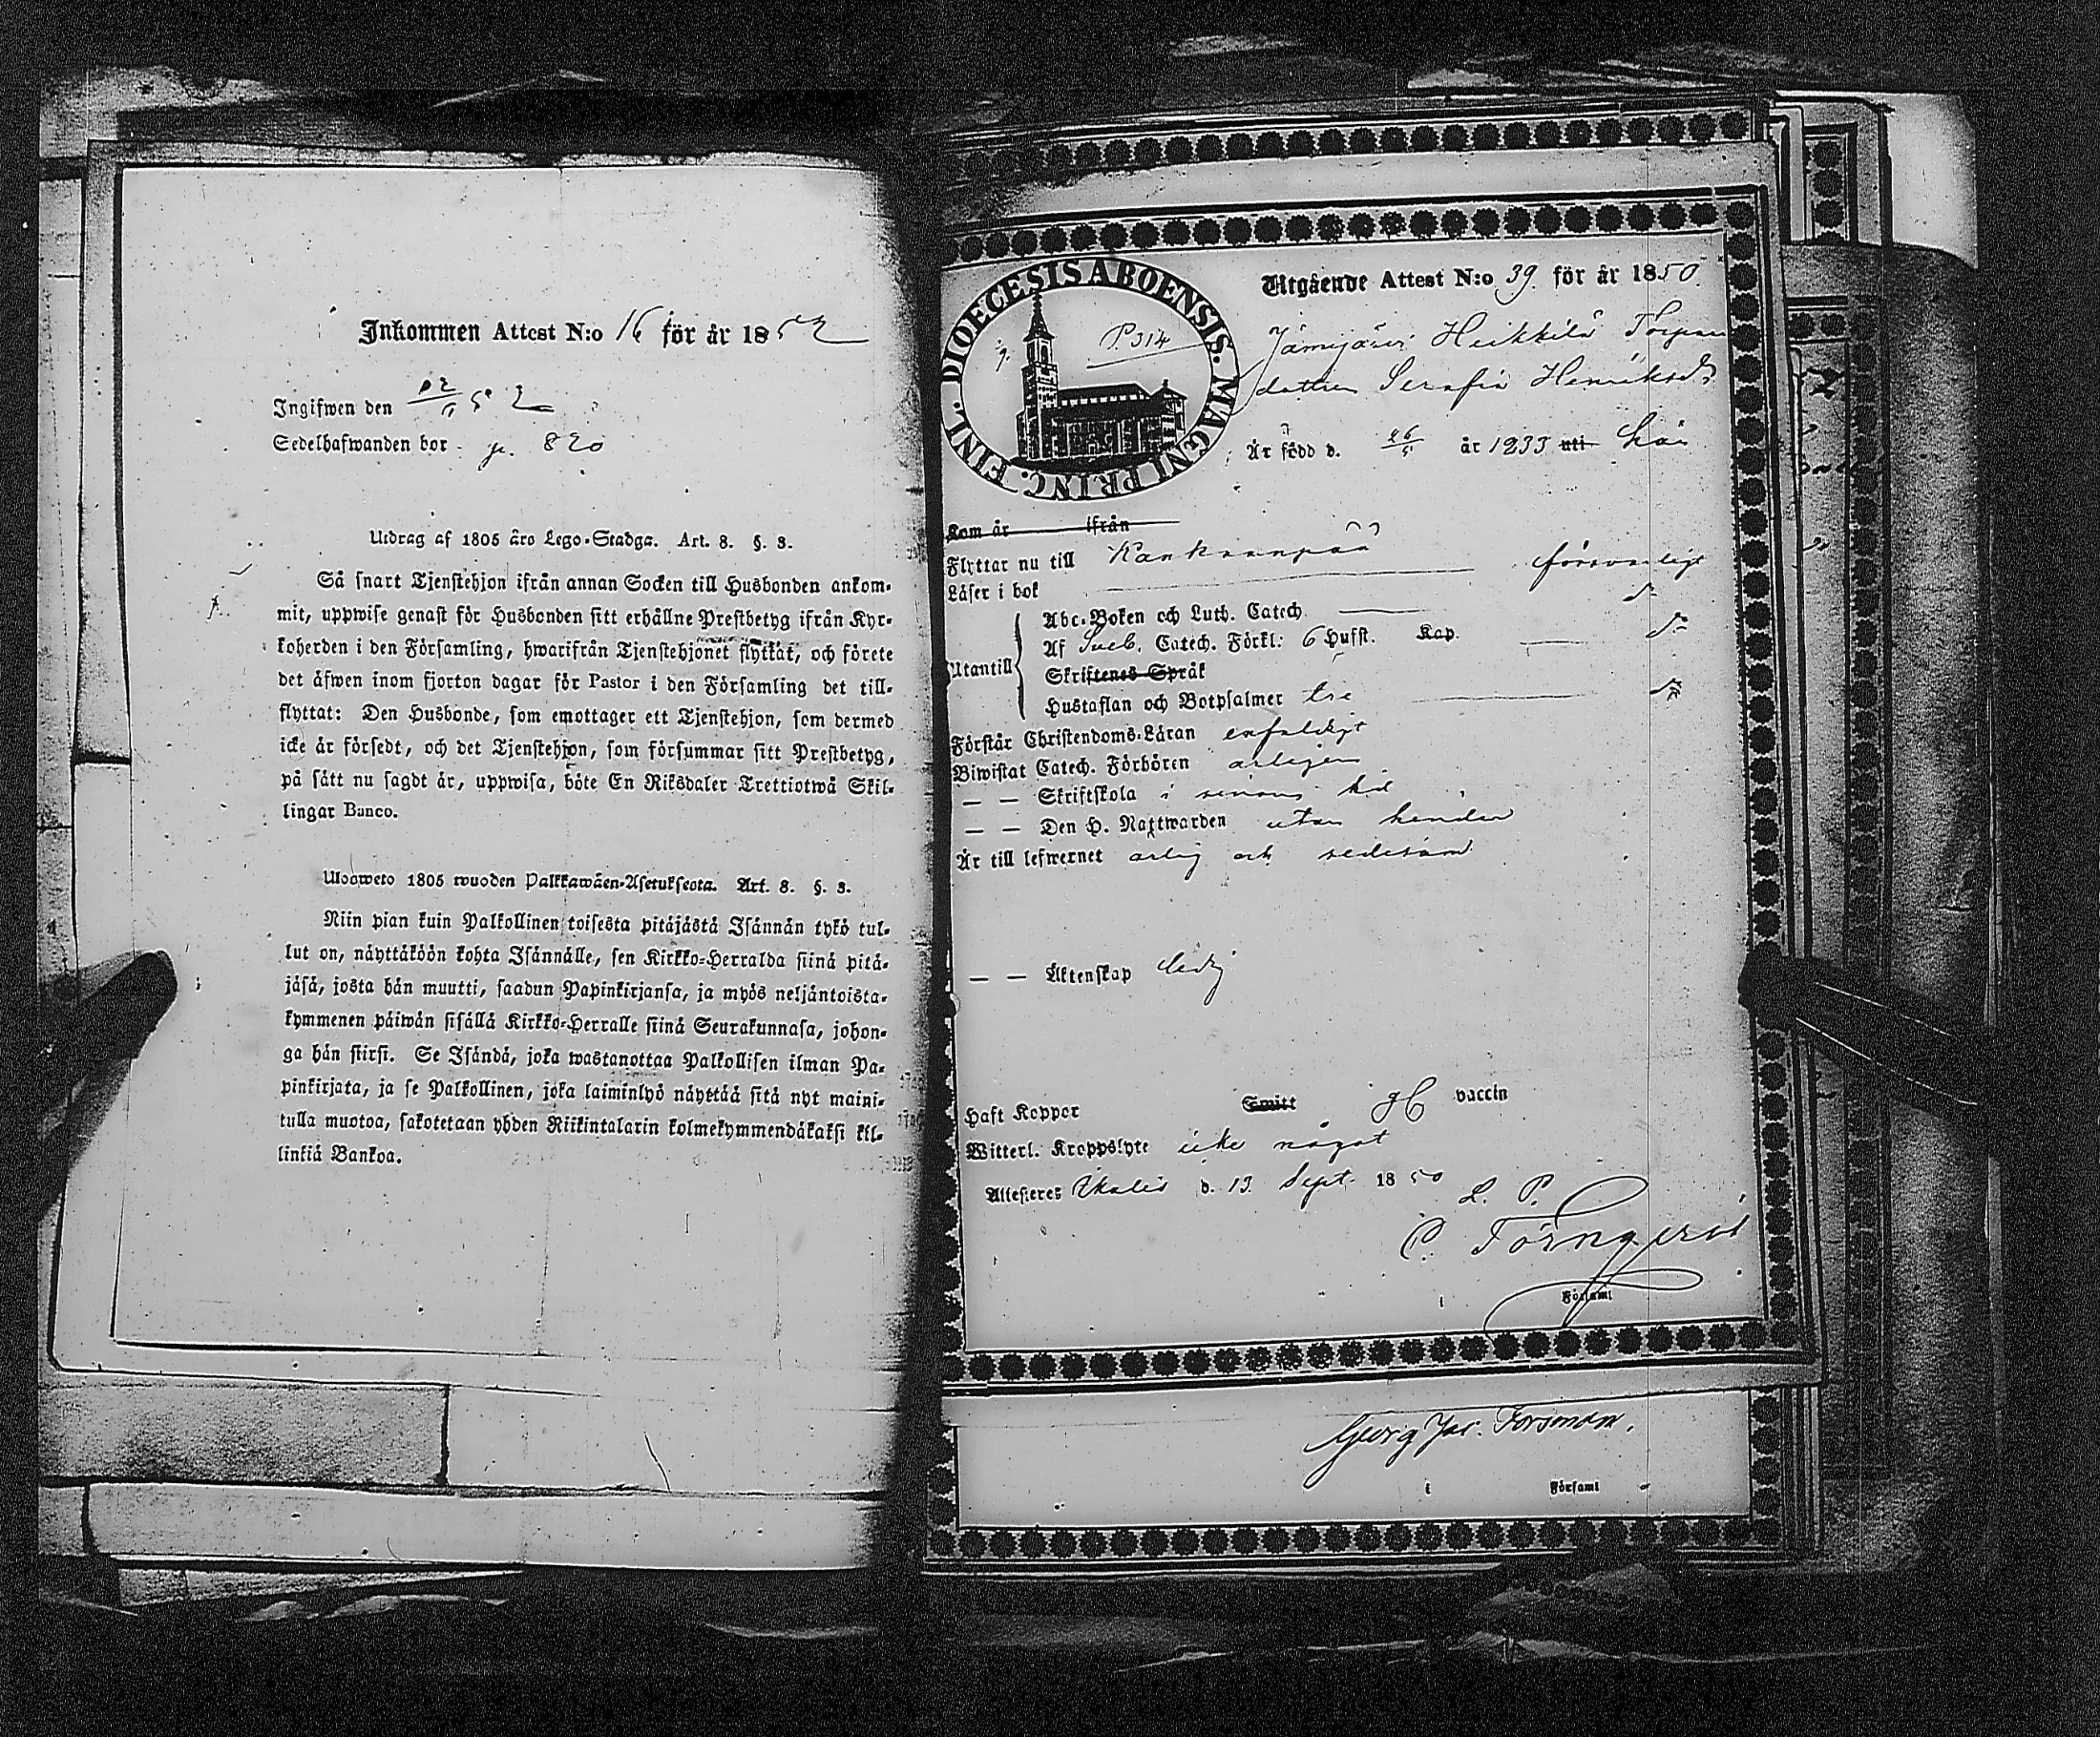 Inkommen Attest N:o 16 för år 1852
Ingifwen den
Sedelhafwanden bor p. 820
Utdrag af 1805 års Lego-Stadga. Art. 8. §. 3.
Så snart Tjenstehjon ifrån annan Socken till Husbonden ankom-
mit, uppwise genast för Husbonden sitt erhållne Prestbetyg ifrån Kyr-
koherden i den Församling, hwarifrån Tjenstehjonet flyttat, och förete
det äfwen inom fjorton dagar för Pastor i den Församling det till-
flyttat: Den Husbonde, som emottager ett Tjenstehjon, som dermed
icke är försedt, och det Tjenstehjon, som försummar sitt Prestbetyg,
på sätt nu sagdt är, uppwisa, böte En Riksdaler Trettiotwå Skil-
lingar Banco.
Ulosweto 1805 wuoden Palkkawäen-Asetuksesta. Art. 8. §. 3.
Niin pian kuin Palkollinen toisesta pitäjästä Isännän tykö tul-
lut on, näyttäköön kohta Isännälle, sen Kirkko-Herralda siinä pitä-
jäsä, josta hän muutti, saadun Papinkirjansa, ja myös neljäntoista-
kymmenen päiwän sisällä Kirkko-Herralle siinä Seurakunnasa, johon-
ga hän siirsi. Se Isändä, joka wastanottaa Palkollisen ilman Pa-
pinkirjata, ja se Palkollinen, joka laiminlyö näyttää sitä nyt maini-
tulla muotoa, sakotetaan yhden Riikintalarin kolmekymmendäkaksi kil-
linkiä Bankoa.
DIOECESIS ABOENSIS. MAGNI PRINC. FINL.
P. 314
Utgående Attest N:o 39 för år 1850.
Jämijärvi Heikkilä Torpare
dottren Serafia Henriksdr
Är född d. 26/5 år 1833 uti här
Kom år ifrån
Flyttar nu till Kankaanpää
Läser i bok försvarligt
Utantill
Abc-Boken och Luth. Catech. do
Af Sveb. Catech. Förkl: 6 Hufst. Kap. do
Skriftenes Språk
Hustaflan och Botpsalmer tre do
Förstår Christendoms-Läran enfaldigt
Biwistat Catech. Förhören årligen
— — Skriftskola i sinom tid
— — Den H. Nattwarden utan hinder
Är till lefwernet ärlig och sedesam
— — Äktenskap ledig
Haft Koppor Smitt gC vaccin
Witterl. Kroppslyte icke något
Attesteras Ikalis d. 13 Sept. 1850
L. P.
C. Törnqvist
i Församl
Georg Jac. Forsman.
i Församl